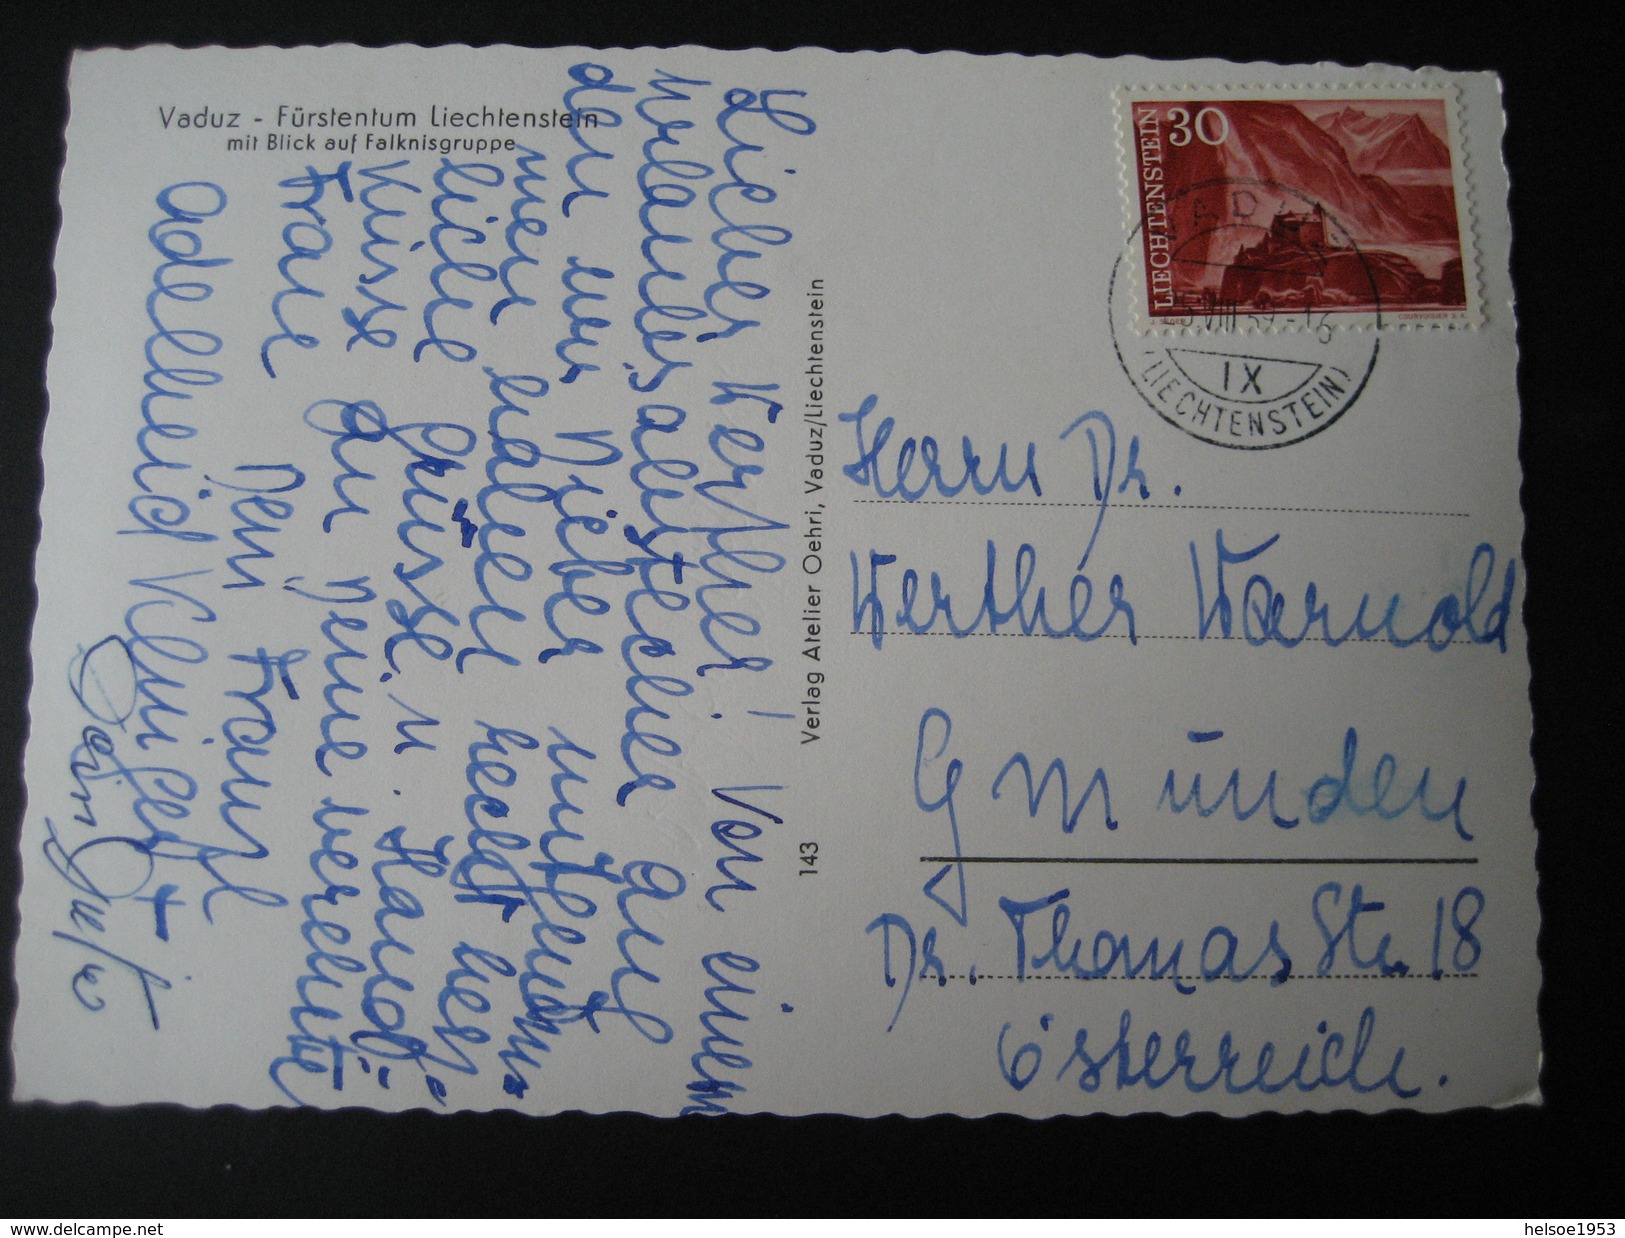 Vaduz - Fürstentum Liechtenstein
mit Blick auf Falknisgruppe
Liebes Werther! Von einem
Urlaubsabstecher auf
den wir Dieber unternom-
men haben recht herz-
liche Grüsse u. Handküsse
Frau an Deine verehrte
Dein Franzl
Adelheid
Verlag Atelier Oehri, Vaduz/Liechtenstein
143
30
LIECHTENSTEIN
COURVOISIER S.A.
VADUZ
25.VIII.59-16
IX
(LIECHTENSTEIN)
Herrn Dr.
Werther Warnold
Gmünden
Dr. Thomas Str. 18
Österreich.
delcampe.net
helsoe1953